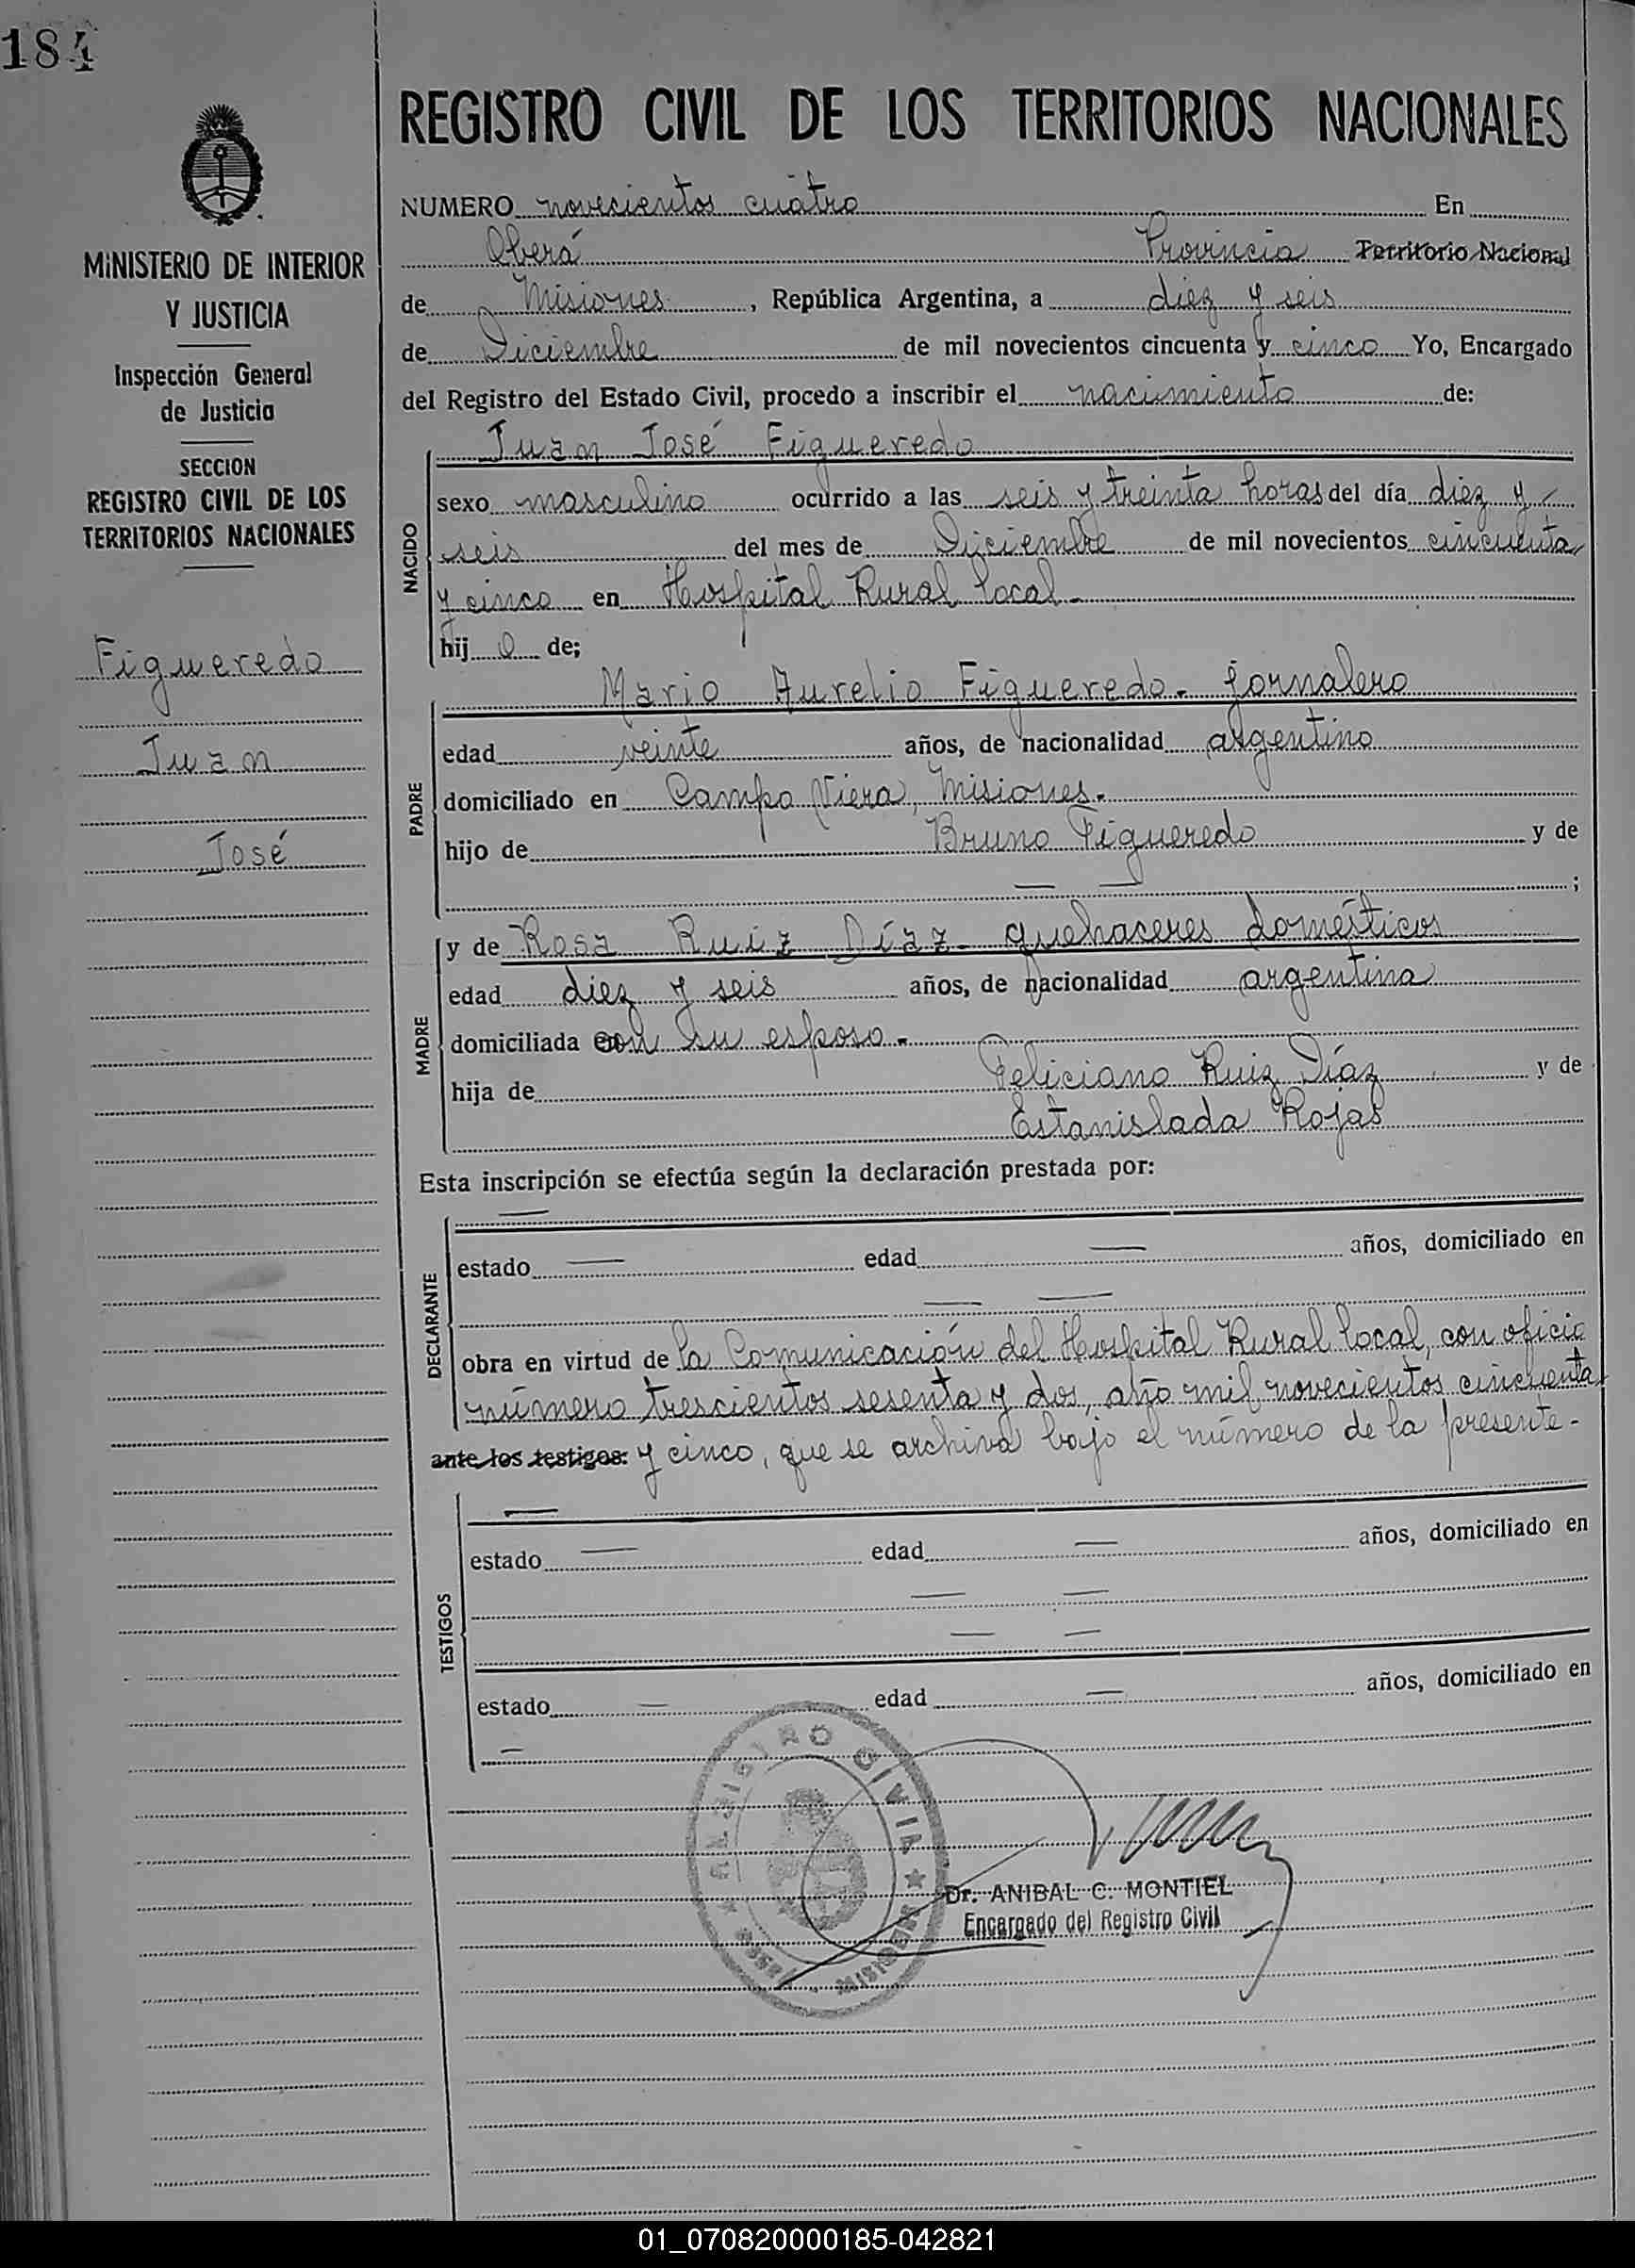 184
MINISTERIO DE INTERIOR
Y JUSTICIA
Inspección General
de Justicia
SECCION
REGISTRO CIVIL DE LOS
TERRITORIOS NACIONALES
Figueredo
Juan
José
REGISTRO CIVIL DE LOS TERRITORIOS NACIONALES
NUMERO novecientos cuatro En
Oberá Provincia Territorio Nacional
de Misiones, República Argentina, a diez y seis
de Diciembre de mil novecientos cincuenta y cinco Yo, Encargado
del Registro del Estado Civil, procedo a inscribir el nacimiento de:
Juan José Figueredo
NACIDO
sexo masculino ocurrido a las seis y treinta horas del día diez y
seis del mes de Diciembre de mil novecientos cincuenta
y cinco en Hospital Rural local.-
hijo de;
Mario Aurelio Figueredo - jornalero
PADRE
edad veinte años, de nacionalidad argentino
domiciliado en Campo Viera, Misiones.-
hijo de Bruno Figueredo y de
— — ;
y de Rosa Ruiz Díaz - quehaceres domésticos
MADRE
edad diez y seis años, de nacionalidad argentina
domiciliada con su esposo.-
hija de Feliciano Ruiz Díaz y de
Estanislada Rojas
Esta inscripción se efectúa según la declaración prestada por:
—
DECLARANTE
estado — edad — años, domiciliado en
— —
obra en virtud de la Comunicación del Hospital Rural local, con oficio
número trescientos sesenta y dos, año mil novecientos cincuenta
ante los testigos: y cinco, que se archiva bajo el número de la presente.-
—
TESTIGOS
estado — edad — años, domiciliado en
— —
— —
estado — edad — años, domiciliado en
—
REGISTRO CIVIL
MISIONES
Dr. ANIBAL C. MONTIEL
Encargado del Registro Civil
01_070820000185-042821